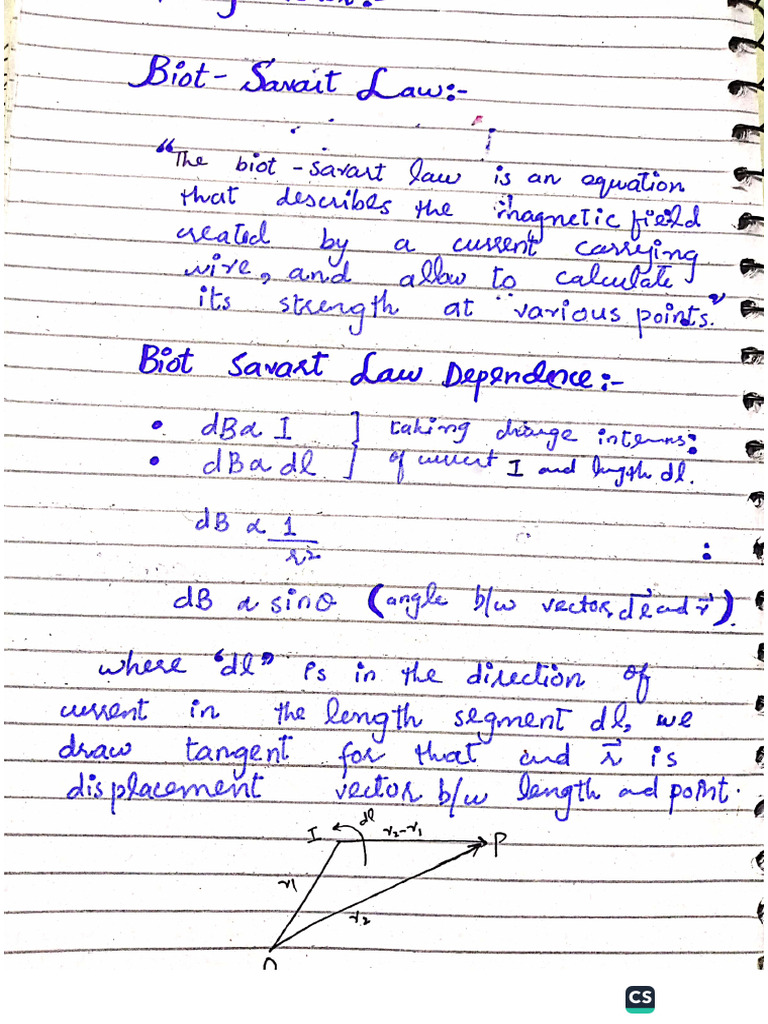 Biot - Savart Law:-
"The biot - savart law is an equation
that describes the magnetic field
created by a current carrying
wire, and allow to calculate
its strength at various points."
Biot Savart Law Dependence:-
• dB α I } taking change interms:
• dB α dl } of current I and length dl.
dB α 1/r² :
dB α sinθ (angle b/w vectors dl⃗ and r⃗).
where "dl" is in the direction of
current in the length segment dl, we
draw tangent for that and r⃗ is
displacement vector b/w length and point.
I dl r₂-r₁ P
r₁
r₂
CS